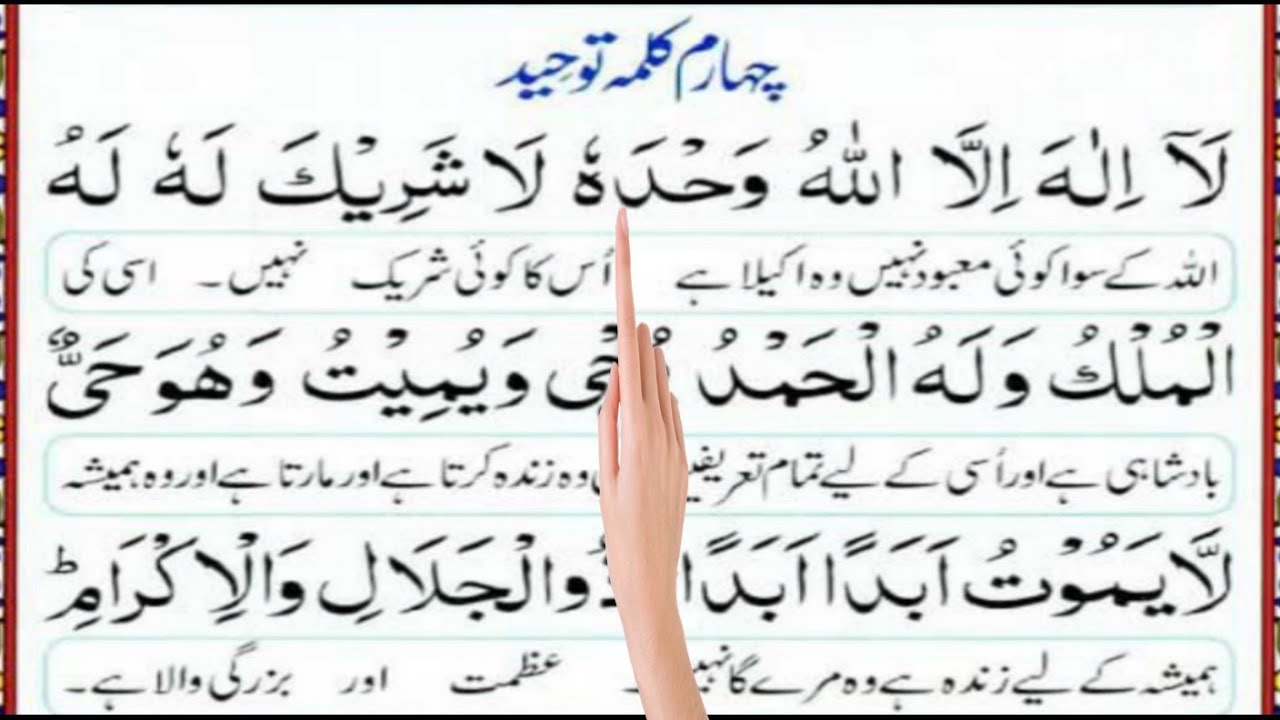 چہارم کلمہ توحید
لَآ اِلٰهَ اِلَّا اللّٰهُ وَحْدَهٗ لَا شَرِيْكَ لَهٗ لَهُ
اللہ کے سوا کوئی معبود نہیں وہ اکیلا ہے اُس کا کوئی شریک نہیں۔ اسی کی
الْمُلْكُ وَلَهُ الْحَمْدُ وَيُمِيْتُ وَهُوَ حَيٌّ
بادشاہی ہے اور اُسی کے لیے تمام وہ زندہ کرتا ہے اور مارتا ہے اور وہ ہمیشہ
لَّا يَمُوْتُ اَبَدًا اَبَدًا الْجَلَالِ وَالْاِكْرَامِ ط
ہمیشہ کے لیے زندہ ہے وہ مرے گا عظمت اور بزرگی والا ہے۔